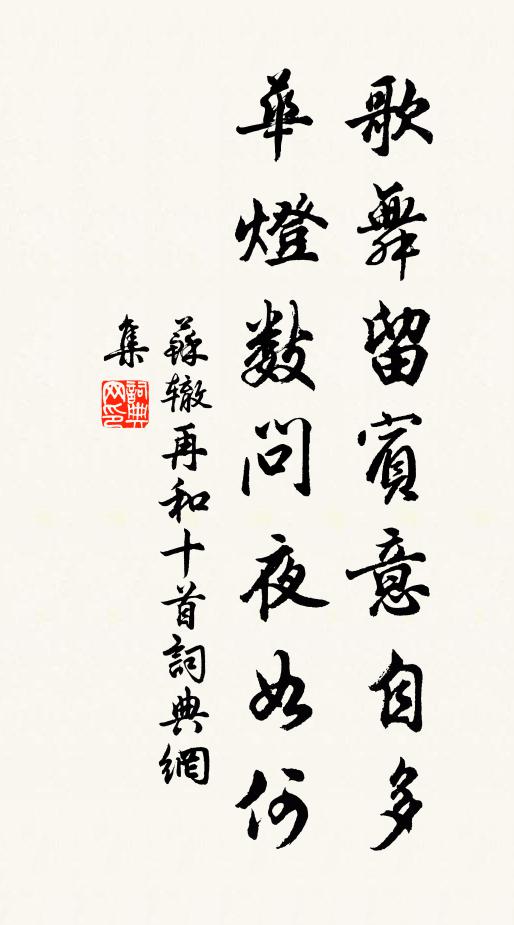 歌舞留賓意自多
華燈數問夜如何
蘇轍再和十首詞典網
集
詞典網印